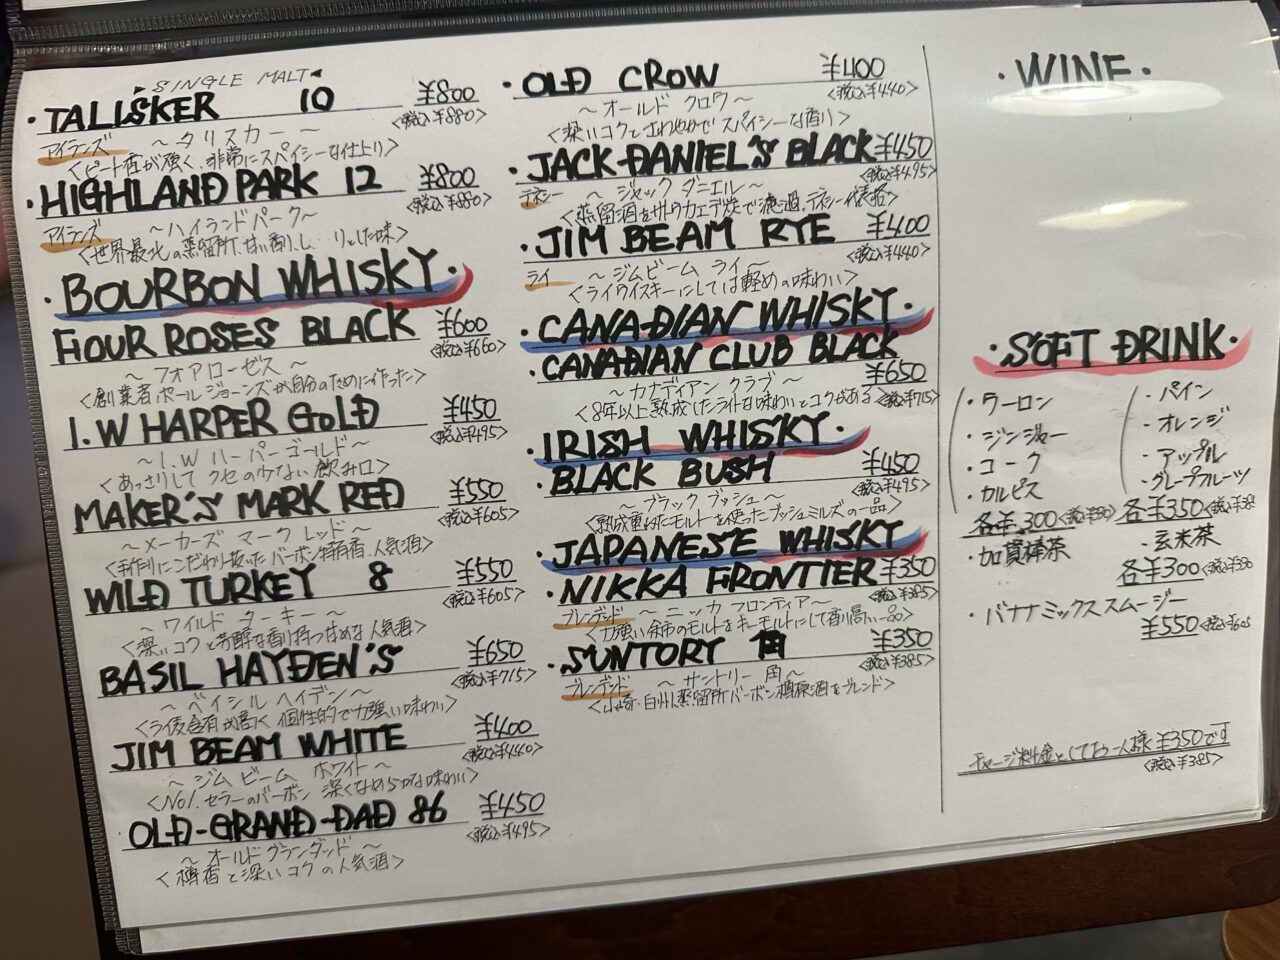 ▶SINGLE MALT◀
・TALISKER 10 ¥800
<税込¥880>
アイランズ ～タリスカー～
<ピート香が強く、非常にスパイシーな仕上り>
・HIGHLAND PARK 12 ¥800
<税込¥880>
アイランズ ～ハイランドパーク～
<世界最北の蒸留所、甘い香りし
・BOURBON WHISKY・
FOUR ROSES BLACK ¥600
<税込¥660>
～フォアローゼス～
<創業者ポールジョーンズが自分のために作った>
I.W HARPER GOLD ¥450
<税込¥495>
～I.W ハーパーゴールド～
<あっさりして クセの少ない飲み口>
MAKER'S MARK RED ¥550
<税込¥605>
～メーカーズ マーク レッド～
<手作りにこだわり抜いたバーボン特有香、人気酒>
WILD TURKEY 8 ¥550
<税込¥605>
～ワイルド ターキー～
<深いコクと芳醇な香り持つ甘めな人気酒>
BASIL HAYDEN'S ¥650
<税込¥715>
～ベイシル ヘイデン～
<ライ麦含有が高く 個性的で力強い味わい>
JIM BEAM WHITE ¥400
<税込¥440>
～ジム ビーム ホワイト～
<No1.セラーのバーボン 深くなめらかな味わい>
OLD-GRAND-DAD 86 ¥450
<税込¥495>
～オールドグランダッド～
<樽香と深いコクの人気酒>
・OLD CROW ¥400
<税込¥440>
～オールド クロウ～
<深いコクとさわやかでスパイシーな香り>
・JACK DANIEL'S BLACK ¥450
<税込¥495>
テネシー ～ジャック ダニエル～
<蒸留酒をサトウカエデ炭で濾過、テネシー代表格>
・JIM BEAM RYE ¥400
<税込¥440>
ライ ～ジムビーム ライ～
<ライウイスキーにしては軽めの味わい>
・CANADIAN WHISKY・
CANADIAN CLUB BLACK
¥650
～カナディアン クラブ～
<8年以上熟成したライトな味わいとコクがある> <税込¥715>
・IRISH WHISKY・
BLACK BUSH ¥450
<税込¥495>
～ブラック ブッシュ～
<熟成重ねたモルトを使ったブッシュミルズの一品>
・JAPANESE WHISKY
・NIKKA FRONTIER ¥350
<税込¥385>
ブレンデッド ～ニッカ フロンティア～
<力強い余市のモルトをキーモルトにして香り高い一品>
・SUNTORY 角 ¥350
<税込¥385>
ブレンデッド ～サントリー 角～
<山崎・白州蒸留所バーボン樽原酒をブレンド>
・WINE・
・SOFT DRINK・
・ウーロン
・ジンジャー
・コーク
・カルピス
各¥300
・パイン
・オレンジ
・アップル
・グレープフルーツ
各¥350
・加賀棒茶 ・玄米茶
各¥300 <税込¥330
・バナナミックススムージー
¥550 <税込¥605
チャージ料金としてお一人様 ¥350です
<税込¥385>